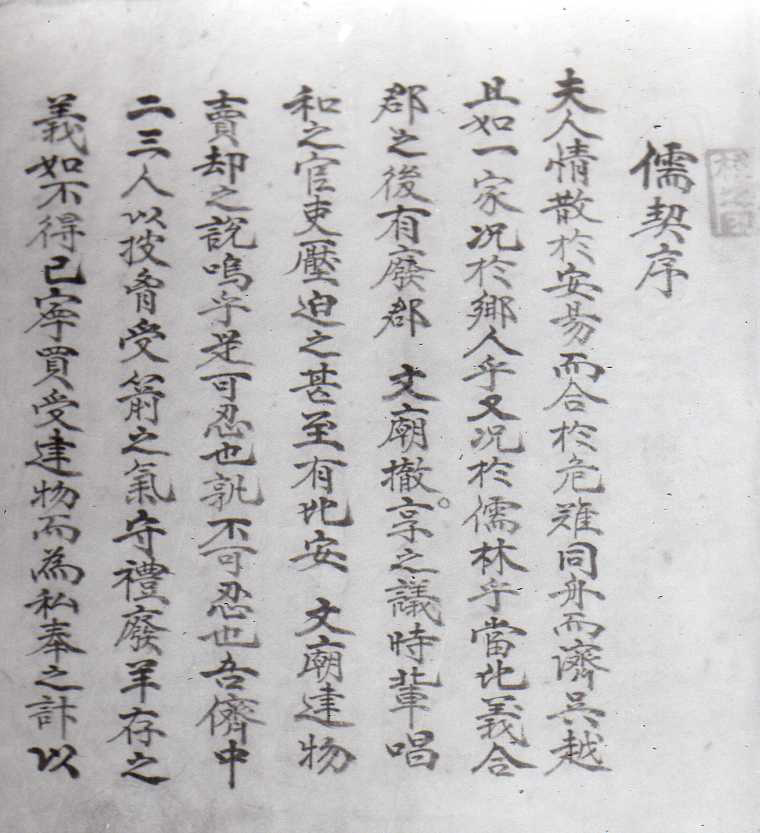 儒契序
夫人情散於安易而合於危難同舟而濟吳越
且如一家况於鄉人乎又况於儒林乎當此義合
郡之後有廢郡 文廟撤享之議時輩唱
和之官吏壓迫之甚至有此安 文廟建物
賣却之說嗚乎是可忍也孰不可忍也吾儕中
二三人以披脅受箭之氣守禮廢羊存之
義如不得已寧買受建物而為私奉之計以